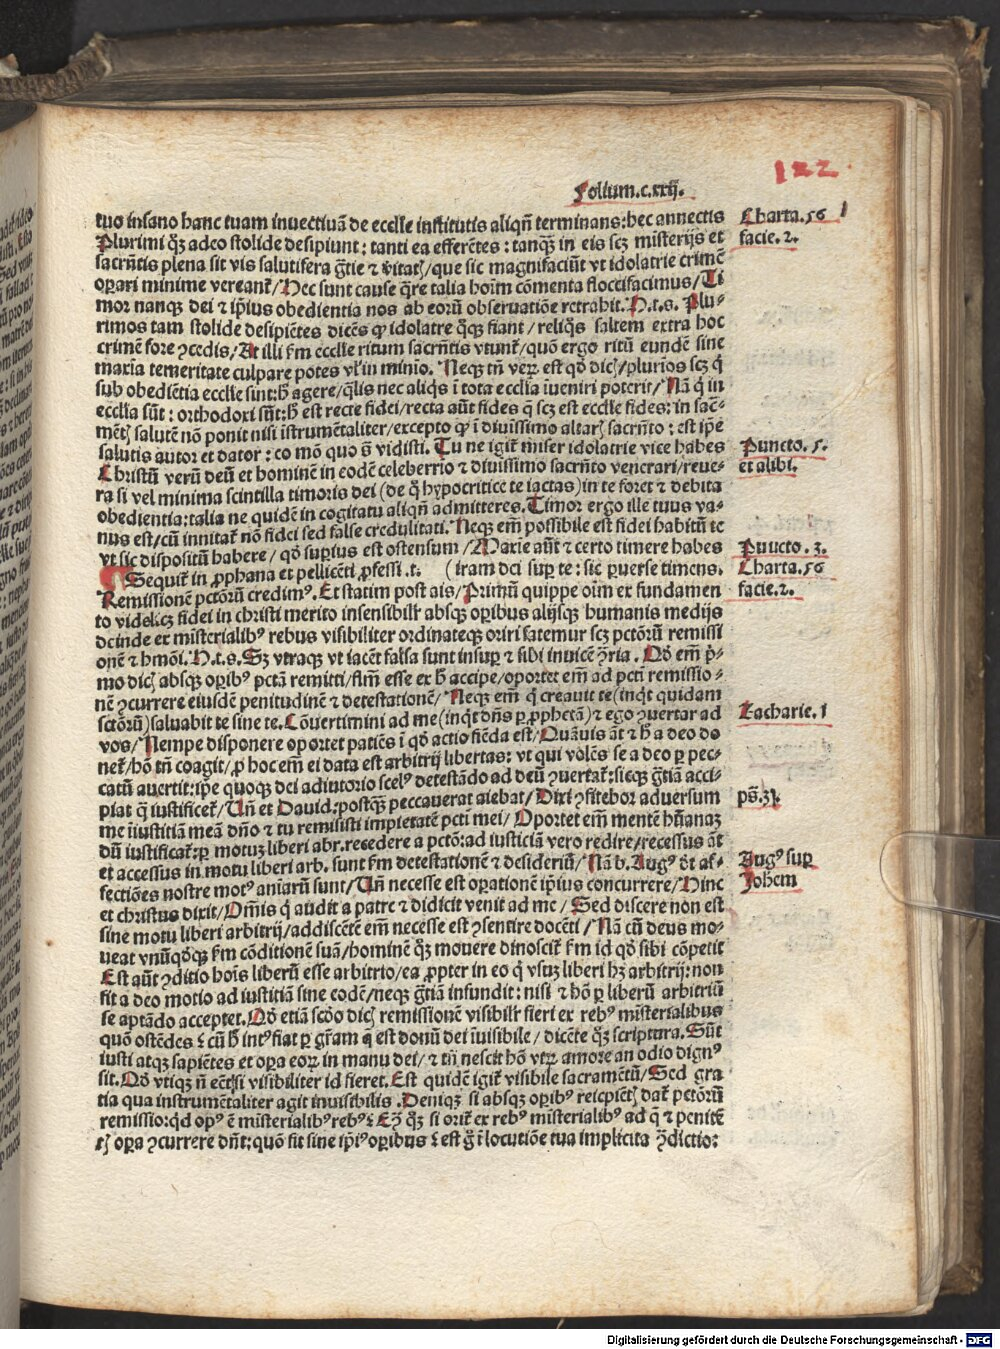 122
Folium.c.xxij.
tuo insano hanc tuam inuectiuã de eccłie institutis aliqñ terminans: hec annectis
Charta.56 1
Plurimi q̃ʒ adeo stolide desipiunt: tanti ea efferẽtes: tanqʒ in eis scʒ misterijs et
facie.2.
sacrñtis plena sit vis salutifera gr̃tie ⁊ vitat̃/que sic magnifaciũt vt idolatrie crimẽ
oꝑari minime vereant̃/Hec sunt cause q̃re talia hoim cõmenta floccifacimus/Ti
mor nanqʒ dei ⁊ ip̃ius obedientia nos ab eorũ obseruatiõe retrahit.H.t.s. Plu-
rimos tam stolide desipiẽtes dicẽs ꝙ idolatre q̃qʒ fiant/reliq̃s saltem extra hoc
crimẽ fore ꝯcedis/At illi k̃m eccłie ritum sacrñtis vtunt̃/quõ ergo ritũ eundẽ sine
maria temeritate culpare potes vł in minio. Neqʒ tñ veꝝ est qđ dic̃/plurios scʒ q̃
sub obediẽtia eccłie sint: h̃ agere/q̃lis nec aliqs i tota eccłia iueniri poterit/Nã q̃ in
eccłia sũt: orthodoxi sũt: h̃ est recte fidei/recta aũt fides q̃ scʒ est eccłie fides: in sac̃-
mẽt̃ salutẽ nõ ponit nisi ĩstrumẽtaliter/excepto ꝙ i diuissimo altar̃ sacrñto: est ip̃e
salutis autor et dator: eo mõ quo s̃ vidisti. Tu ne igit̃ miser idolatrie vice habes
Puncto.5.
Christũ verũ deũ et hominẽ in eodẽ celeberrio ⁊ diuissimo sacrñto venerari/reue-
et alibi.
ra si vel minima scintilla timoris dei (de q̃ hypocritice te iactas) in te foret ⁊ debita
obedientia: talia ne quidẽ in cogitatu aliqñ admitteres. Timor ergo ille tuus va-
nus est/cũ innitat̃ nõ fidei sed false credulitati. Neqʒ em̃ possibile est fidei habitũ te
vt sic dispositũ habere/qđ suꝑius est ostensum/Marie aũt ⁊ certo timere habes
Puncto.3.
Sequit̃ in ꝓphana et pellicẽti ꝓfessi.t. (iram dei suꝑ te: sic ꝑuerse timens.
Charta.56
Remissionẽ pctõrũ credim⁹. Et statim post ais/Primũ quippe oim ex fundamen
facie.2.
to videlicʒ fidei in christi merito insensibilr̃ absqʒ oꝑibus alijsqʒ humanis medijs
deinde ex misterialib⁹ rebus visibiliter ordinateqʒ oriri fatemur scʒ pctõrũ remissi
onẽ ⁊ hmõi.H.t.s. Sʒ vtraqʒ vt iacẽt falsa sunt insuꝑ ⁊ sibi inuicẽ ꝯria. Qđ em̃ p̃i-
mo dic̃ absqʒ oꝑib⁹ pctã remitti/flm̃ esse ex h̃ accipe/oportet em̃ ad pcti remissio-
nẽ ꝯcurrere eiusdẽ penitudinẽ ⁊ detestationẽ/Neqʒ em̃ q̃ creauit te (inq̃t quidam
sctõrũ) saluabit te sine te. Cõuertimini ad me (inq̃t dñs ꝑ ꝓphetã) ⁊ ego ꝯuertar ad
Zacharie.1
vos/Nempe disponere oportet patiẽs i qđ actio fiẽda est/Quãuis aũt ⁊ h̃ a deo do
net̃/hõ tñ coagit/ꝓ hoc em̃ ei data est arbitrij libertas: vt qui volẽs se a deo ꝑ pec-
catũ auertit: ip̃e quoqʒ dei adiutorio scel⁹ detestãdo ad deũ ꝯuertat̃: sicqʒ gr̃tiã acci-
piat q̃ iustificet̃/Uñ et Dauid: postqʒ̃ peccauerat aiebat/Dixi ꝯfitebor aduersum
ps̃.31.
me iiustitiã meã dño ⁊ tu remisisti impietatẽ pcti mei/Oportet em̃ mentẽ hũanaʒ
dũ iustificat̃: ꝑ motuʒ liberi abr. recedere a pctõ: ad iusticiã vero redire/recessus aũt
et accessus in motu liberi arb. sunt k̃m detestationẽ ⁊ desideriũ/Nã b. Aug⁹ dt̃ af-
Aug⁹ suꝑ
fectiões nostre mot⁹ aniarũ sunt/Uñ necesse est oꝑationẽ ip̃ius concurrere/Hinc
Johem
et christus dixit/Om̃is q̃ audit a patre ⁊ didicit venit ad me/Sed discere non est
sine motu liberi arbitrij/addiscẽtẽ em̃ necesse est ꝯsentire docẽti/Nã cũ deus mo-
ueat vnũqđqʒ k̃m cõditionẽ suã/hominẽ q̃ʒ mouere dinoscit̃ k̃m id qđ sibi cõpetit
Est aũt ꝯditio hois liberũ esse arbitrio/ea ꝓpter in eo q̃ vsuʒ liberi hʒ arbitrij: non
fit a deo motio ad iustitiã sine eodẽ/neqʒ gr̃tiã infundit: nisi ⁊ hõ ꝑ liberũ arbitriũ
se aptãdo acceptet. Qđ etiã scđo dic̃ remissionẽ visibilr̃ fieri ex reb⁹ misterialibus
quõ ostẽdes ⸮ cũ h̃ int⁹ fiat ꝑ gr̃am q̃ est donũ dei iuisibile/dicẽte q̃ʒ scriptura. Sũt
iusti atqʒ sapiẽtes et oꝑa eoꝝ in manu dei/⁊ tñ nescit hõ vtꝝ amore an odio dign⁹
sit. Qđ vtiqʒ ñ eẽt si visibiliter id fieret. Est quidẽ igit̃ visibile sacramẽtũ/Sed gra
tia qua instrumẽtaliter agit inuisibilis. Deniqʒ si absqʒ oꝑib⁹ reicpiet̃ dat̃ pctõrũ
remissio: qđ op⁹ ẽ misterialib⁹ reb⁹ ⸮ Eꝯ q̃ʒ si orit̃ ex reb⁹ misterialib⁹ ad q̃ ⁊ penitẽ
t̃ oꝑa ꝯcurrere dñt: quõ fit sine ip̃i⁹ oꝑibus ⸮ est g̃ i locutiõe tua implicita ꝯ̃dictio:
Digitalisierung gefördert durch die Deutsche Forschungsgemeinschaft - DFG